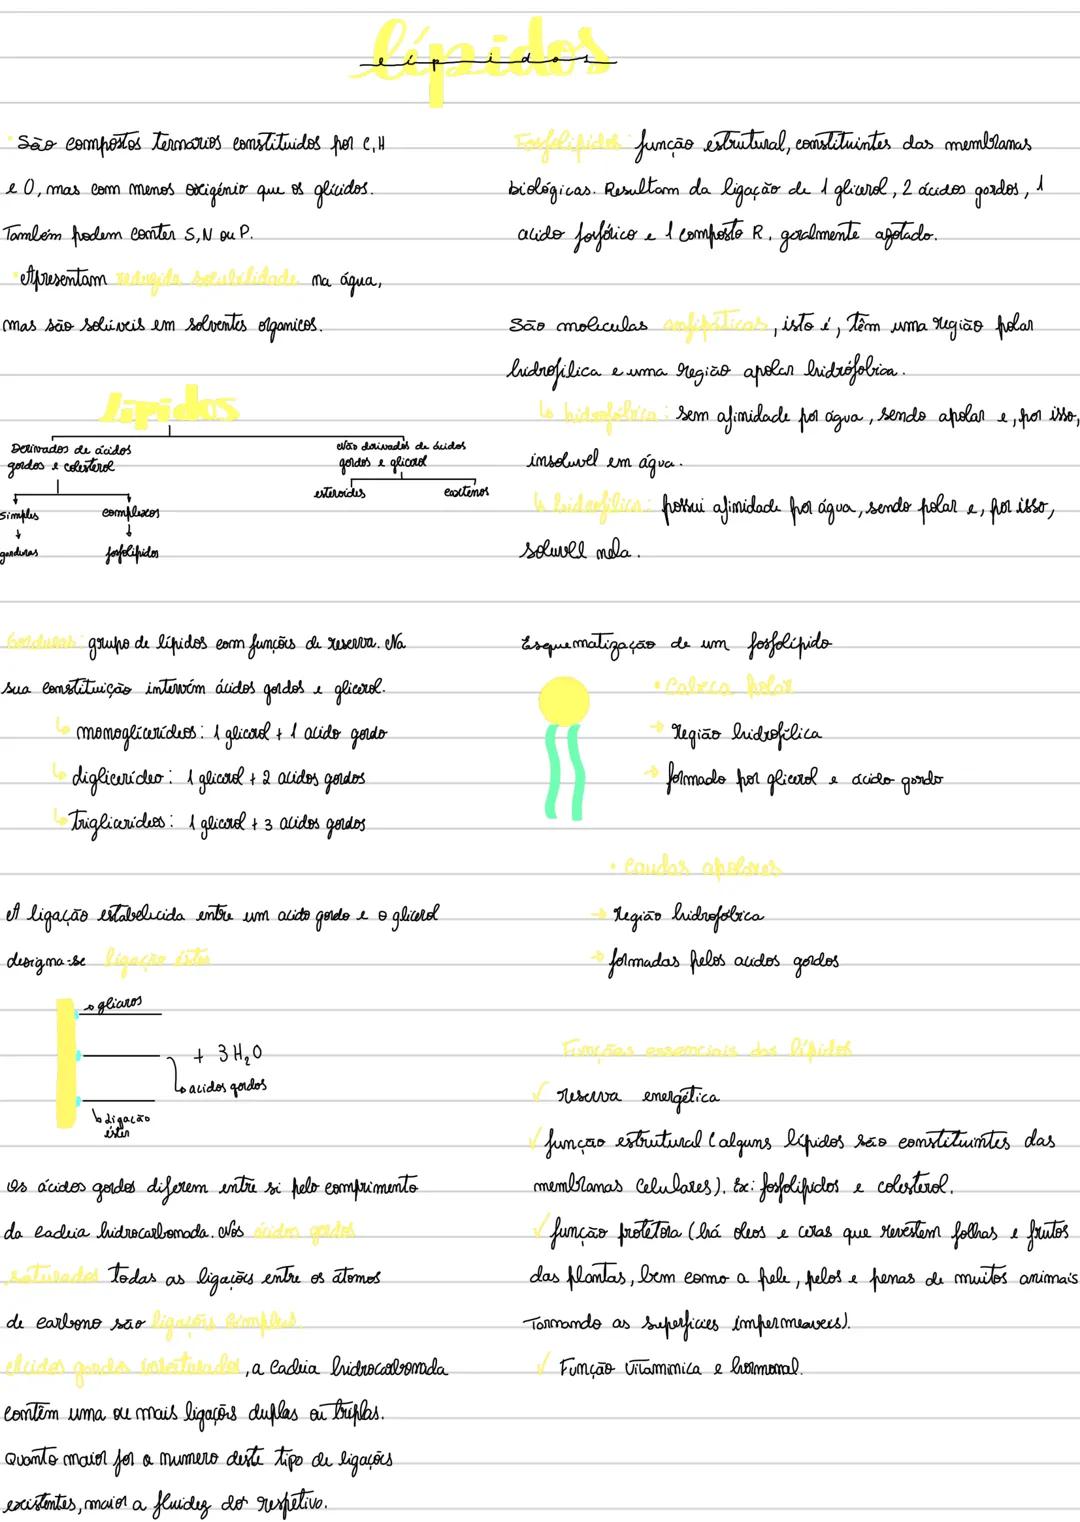 lípidos
lípidos
• São compostos ternários constituidos por C, H
e O, mas com menos oxigénio que os glícidos.
Também podem conter S, N ou P.
• Apresentam reduzida solubilidade na água,
mas são solúveis em solventes organicos.
lípidos
Derivados de ácidos
gordos e colesterol
Não derivados de ácidos
gordos e glicerol
simples
complexos
esteroides
gorduras
fosfolípidos
Gorduras: grupo de lípidos com funções de reserva. Na
sua constituição intervém ácidos gordos e glicerol.
↳ monoglicerídeos: 1 glicerol + 1 acido gordo
↳ diglicerídeo: 1 glicerol + 2 acidos gordos
↳ Triglicerídeos: 1 glicerol + 3 acidos gordos
A ligação estabelecida entre um acido gordo e o glicerol
designa-se ligação éster
+ 3 H₂O
↳ acidos gordos
↳ ligação
éster
Os ácidos gordos diferem entre si pelo comprimento
da cadeia hidrocarbonada. Nos ácidos gordos
saturados todas as ligações entre os átomos
de carbono são ligações simples.
Ácidos gordos insaturados, a cadeia hidrocarbonada
contêm uma ou mais ligações duplas ou triplas.
Quanto maior for o numero deste tipo de ligações
existentes, maior a fluidez do respetivo.
Fosfolípidos: função estrutural, constituintes das membranas
biológicas. Resultam da ligação de 1 glicerol, 2 ácidos gordos, 1
acido fosfórico e 1 composto R, geralmente azotado.
São moleculas anfipáticas, isto é, têm uma região polar
hidrofilica e uma região apolar hidrófobica.
↳ hidrofóbica: Sem afinidade por água, sendo apolar e, por isso,
insoluvel em água.
↳ hidrofílica: possui afinidade por água, sendo polar e, por isso,
soluvel nela.
Esquematização de um fosfolípido
• Cabeça polar
→ região hidrofílica
→ formado por glicerol e ácido gordo
• caudas apolares
→ região hidrofóbica
→ formadas pelos acidos gordos
Funções essenciais dos lípidos
✓ reserva energética
✓ função estrutural (alguns lípidos são constituintes das
membranas celulares). Ex: fosfolípidos e colesterol.
✓ função protetora (há oleos e ceras que revestem folhas e frutos
das plantas, bem como a pele, pelos e penas de muitos animais
tornando as superficies impermeaveis).
✓ Função vitaminica e hormonal.